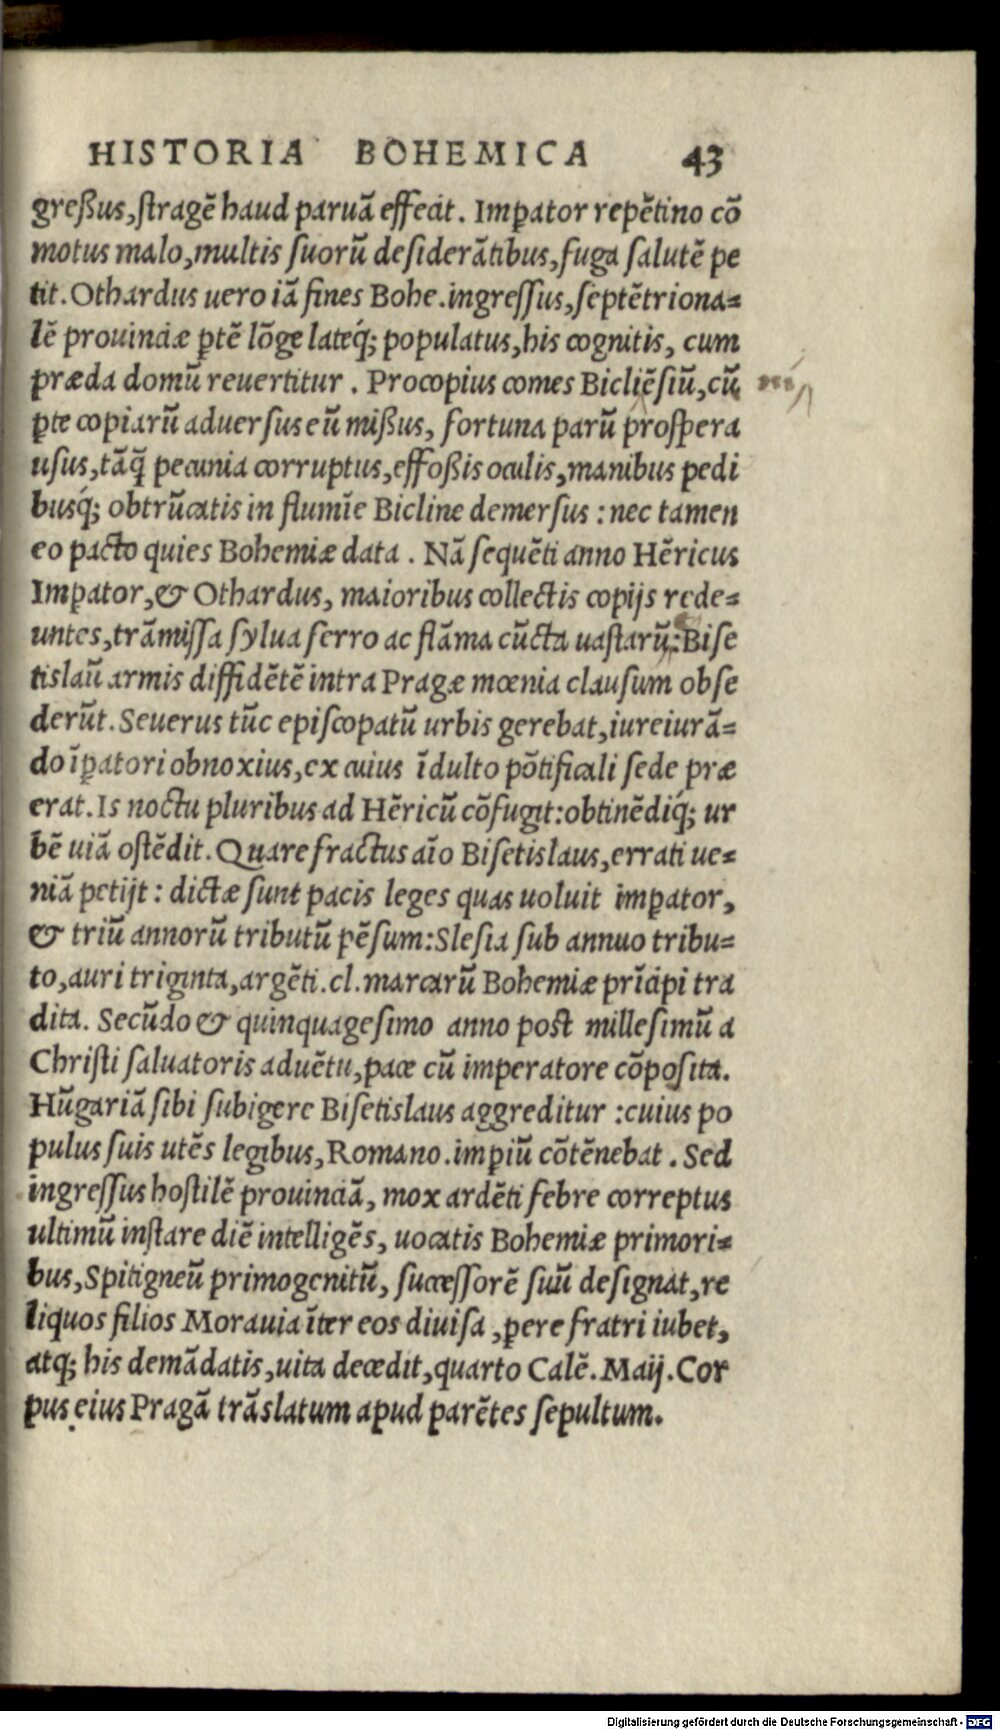 HISTORIA BOHEMICA 43
greßus, ſtragē haud paruā effecit. Imꝑator repētino cō
motus malo, multis ſuorū deſiderātibus, fuga ſalutē pe
tit. Othardus uero iā fines Bohe. ingreſſus, ſeptētriona=
lē prouinciæ ꝑtē lōge lateq́; populatus, his cognitis, cum
præda domū reuertitur. Procopius comes Bicliēſiū, cū
ꝑte copiarū aduerſus eū mißus, fortuna parū proſpera
uſus, tāq̄ pecunia corruptus, effoßis oculis, manibus pedi
busq́; obtrūcatis in flumīe Bicline demerſus: nec tamen
eo pacto quies Bohemiæ data. Nā ſequēti anno Hēricus
Imꝑator, & Othardus, maioribus collectis copijs rede=
untes, trāmiſſa ſylua ferro ac flāma cūcta uaſtarū: Biſe
tislaū armis diffidētē intra Pragæ mœnia clauſum obſe
derūt. Seuerus tūc epiſcopatū urbis gerebat, iureiurā=
do īꝑatori obnoxius, ex cuius īdulto pōtificali ſede præ
erat. Is noctu pluribus ad Hēricū cōfugit: obtinēdiq́; ur
bē uiā oſtēdit. Quare fractus aīo Biſetislaus, errati ue=
niā petijt: dictæ ſunt pacis leges quas uoluit imꝑator,
& triū annorū tributū pēſum: Sleſia ſub annuo tribu=
to, auri triginta, argēti. cl. marcarū Bohemiæ prīcipi tra
dita. Secūdo & quinquageſimo anno poſt milleſimū a
Chriſti ſaluatoris aduētu, pace cū imperatore cōpoſita.
Hūgariā ſibi ſubigere Biſetislaus aggreditur: cuius po
pulus ſuis utēs legibus, Romano. imꝑiū cōtēnebat. Sed
ingreſſus hoſtilē prouinciā, mox ardēti febre correptus
ultimū inſtare diē intelligēs, uocatis Bohemiæ primori=
bus, Spitigneū primogenitū, ſucceſſorē ſuū deſignat, re
liquos filios Morauia īter eos diuiſa, ꝑere fratri iubet,
atq; his demādatis, uita decedit, quarto Calē. Maij. Cor
pus eius Pragā trāslatum apud parētes ſepultum.
Digitalisierung gefördert durch die Deutsche Forschungsgemeinschaft - DFG